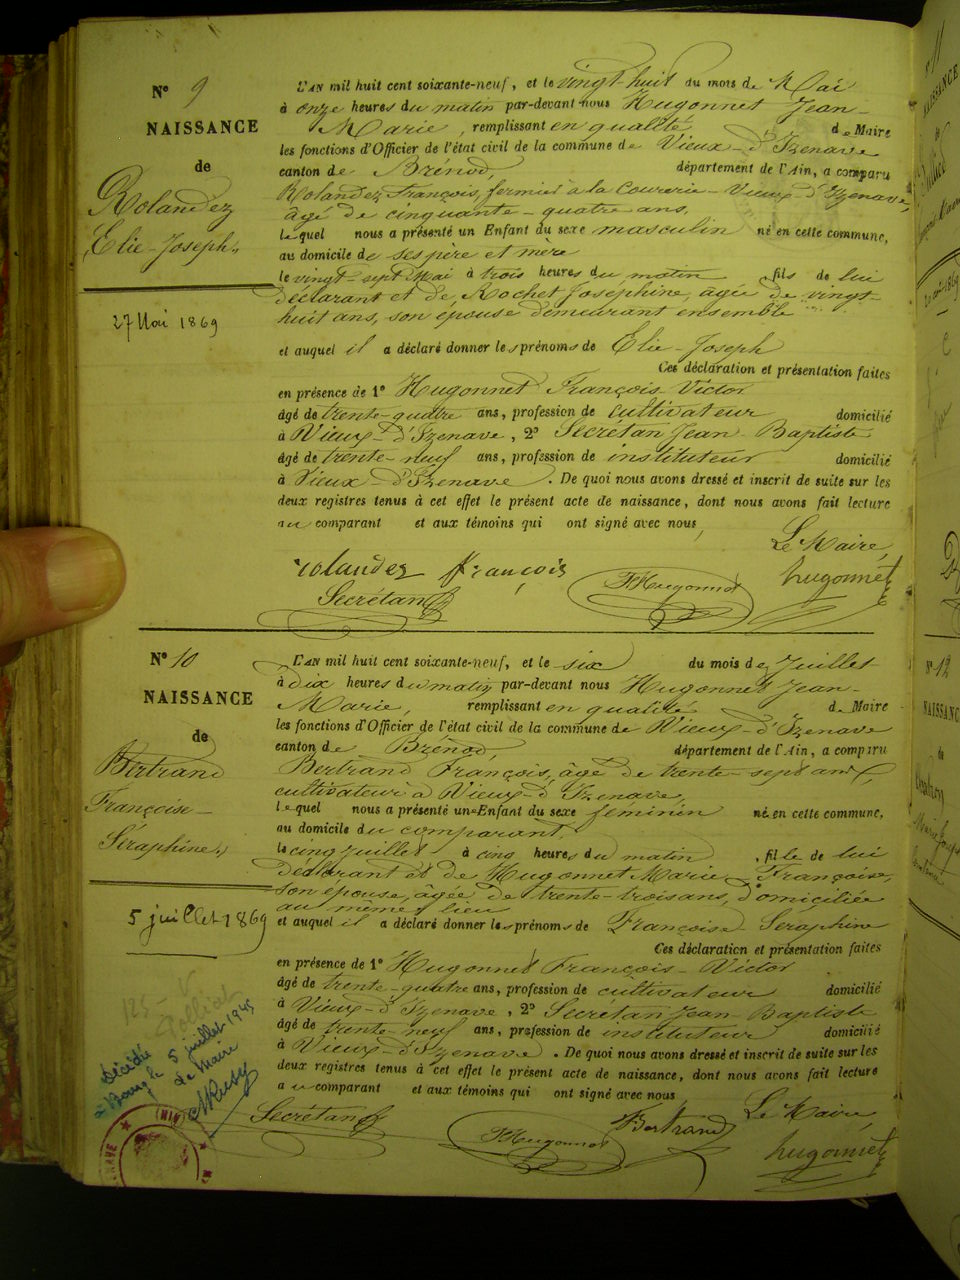 N° 9
NAISSANCE
de
Rolandez
Elie-Joseph.
27 Mai 1869
L'AN mil huit cent soixante-neuf, et le vingt-huit du mois de Mai
à onze heures du matin par-devant nous Hugonnet Jean-
Marie, remplissant en qualité de Maire
les fonctions d'Officier de l'état civil de la commune de Vieux-d'Izenave
canton de Brénod, département de l'Ain, a comparu
Rolandez François, fermier à la Couverie-Vieux-d'Izenave,
âgé de cinquante-quatre ans,
lequel nous a présenté un Enfant du sexe masculin né en cette commune,
au domicile de ses père et mère
le vingt-sept Mai à trois heures du matin, fils de lui
déclarant et de Rochet Joséphine, agée de vingt-
huit ans, son épouse demeurant ensemble
et auquel il a déclaré donner les prénoms de Elie-Joseph
Ces déclaration et présentation faites
en présence de 1° Hugonnet François Victor
âgé de trente-quatre ans, profession de cultivateur domicilié
à Vieux-d'Izenave, 2° Secrétan Jean-Baptiste
âgé de trente-neuf ans, profession de instituteur domicilié
à Vieux-d'Izenave. De quoi nous avons dressé et inscrit de suite sur les
deux registres tenus à cet effet le présent acte de naissance, dont nous avons fait lecture
au comparant et aux témoins qui ont signé avec nous,
Le Maire,
rolandez françois
Secrétan
F Hugonnet
hugonnet
N° 10
NAISSANCE
de
Bertrand
Françoise-
Séraphine,
5 juillet 1869
L'AN mil huit cent soixante-neuf, et le six du mois de Juillet
à dix heures du matin par-devant nous Hugonnet Jean-
Marie, remplissant en qualité de Maire
les fonctions d'Officier de l'état civil de la commune de Vieux-d'Izenave
canton de Brénod, département de l'Ain, a comparu
Bertrand François, âgé de trente-sept ans,
cultivateur à Vieux-d'Izenave,
lequel nous a présenté un Enfant du sexe féminin né en cette commune,
au domicile du comparant,
le cinq juillet à cinq heures du matin, fille de lui
déclarant et de Hugonnet Marie-Françoise,
son épouse, âgée de trente-trois ans, domiciliée
au même lieu
et auquel il a déclaré donner les prénoms de Françoise Séraphine
Ces déclaration et présentation faites
en présence de 1° Hugonnet François-Victor
âgé de trente-quatre ans, profession de cultivateur domicilié
à Vieux-d'Izenave, 2° Secrétan Jean-Baptiste
âgé de trente-neuf ans, profession de instituteur domicilié
à Vieux-d'Izenave. De quoi nous avons dressé et inscrit de suite sur les
deux registres tenus à cet effet le présent acte de naissance, dont nous avons fait lecture
au comparant et aux témoins qui ont signé avec nous
Décédée
à Bourg le 5 juillet 1945
Le Maire
Le Maire,
Secrétan
F Hugonnet
Bertrand
hugonnet
N° 12
NAISSANCE
de